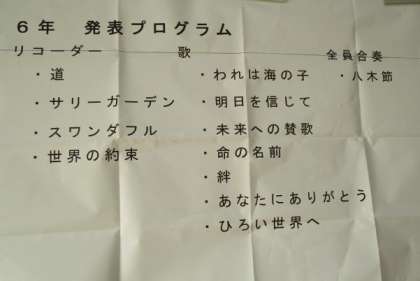 6年 発表プログラム
リコーダー
・道
・サリーガーデン
・スワンダフル
・世界の約束
歌
・われは海の子
・明日を信じて
・未来への賛歌
・命の名前
・絆
・あなたにありがとう
・ひろい世界へ
全員合奏
・八木節